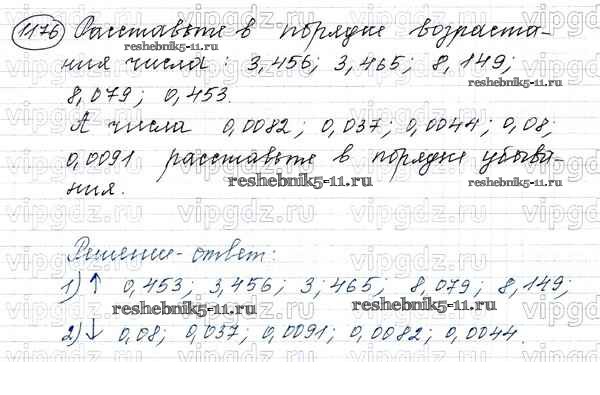 1176 Расставьте в порядке возраста-
ния числа: 3,456; 3,465; 8,149;
8,079; 0,453.
А числа 0,0082; 0,037; 0,0044; 0,08;
0,0091 расставьте в порядке убыва-
ния.
Решение-ответ:
1)↑ 0,453; 3,456; 3;465; 8,079; 8,149;
2)↓ 0,08; 0,037; 0,0091; 0,0082; 0,0044.
reshebnik5-11.ru
vipgdz.ru